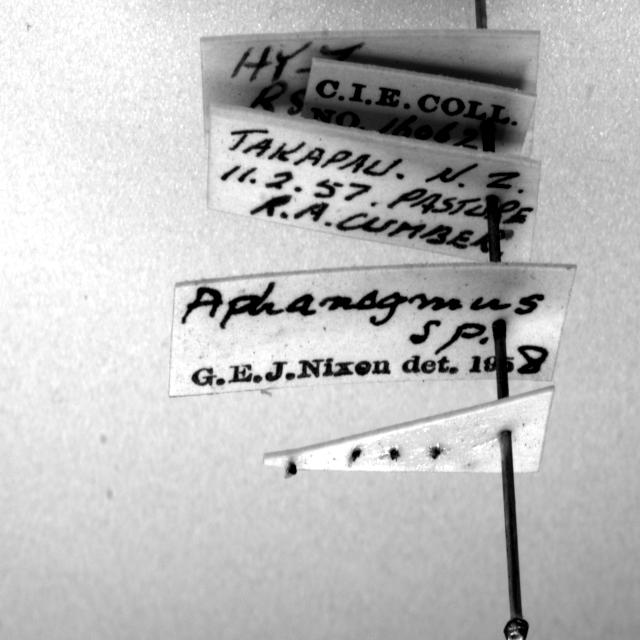 HY-
C.I.E. COLL.
NO.
TAKAPAU. N.Z.
11.2.57. PASTURE
R.A. CUMBER
Aphanogmus
SP.
G.E.J.Nixon det. 1958